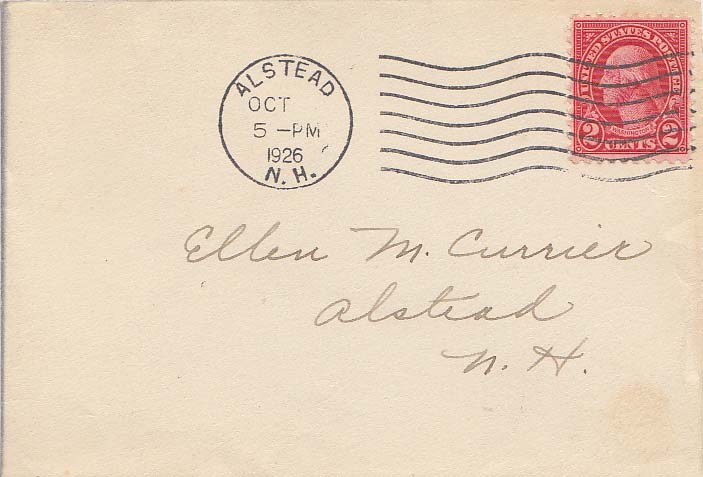 ALSTEAD
OCT
5 -PM
1926
N. H.
UNITED STATES POSTAGE
WASHINGTON
2 CENTS 2
Ellen M. Currier
Alstead
N. H.